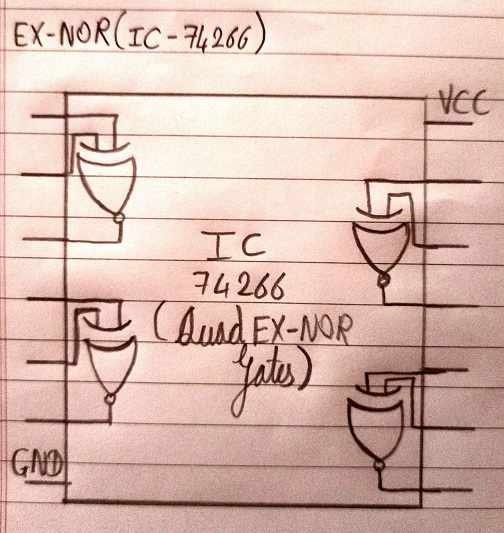 EX-NOR(IC-74266)
VCC
IC
74266
(Quad EX-NOR
Gates)
GND